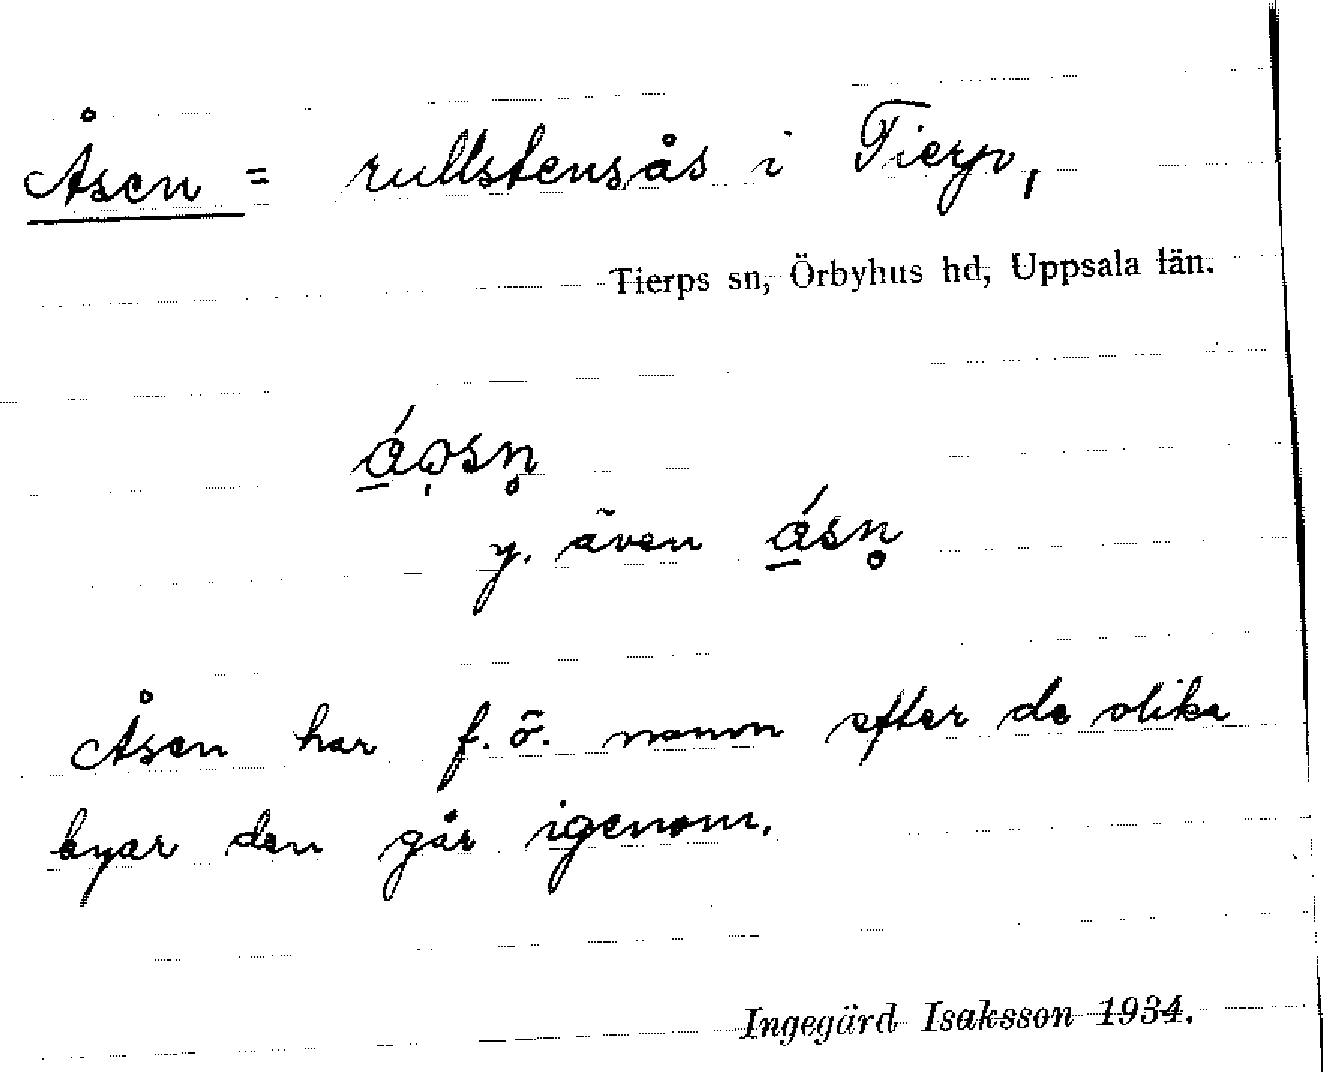 Åsen = rullstensås i Tierp,
Tierps sn, Örbyhus hd, Uppsala län.
á̱ə̩sn̥
y. även á̱sn̥
Åsen har f. ö. namn efter de olika
byar den går igenom.
Ingegärd Isaksson 1934.